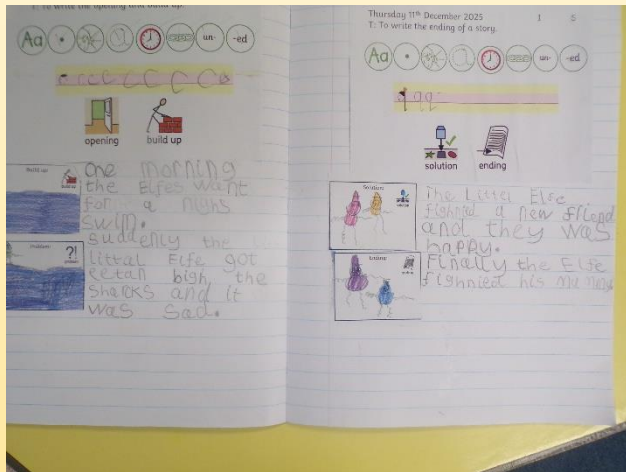 T: To write the opening and build up.
Aa
un-
-ed
opening
build up
Build up
one morning
the Elfes want
for a nighs
swim.
Suddenly the
Problem
?!
littal Elfe got
eetan bigh the
Sharcks and it
was sad.
Thursday 11th December 2025
1 5
T: To write the ending of a story.
Aa
un-
-ed
solution
ending
Solution
The Littel Elfe
a new friend
and they was
happy.
Ending
Finally the Elfe
his